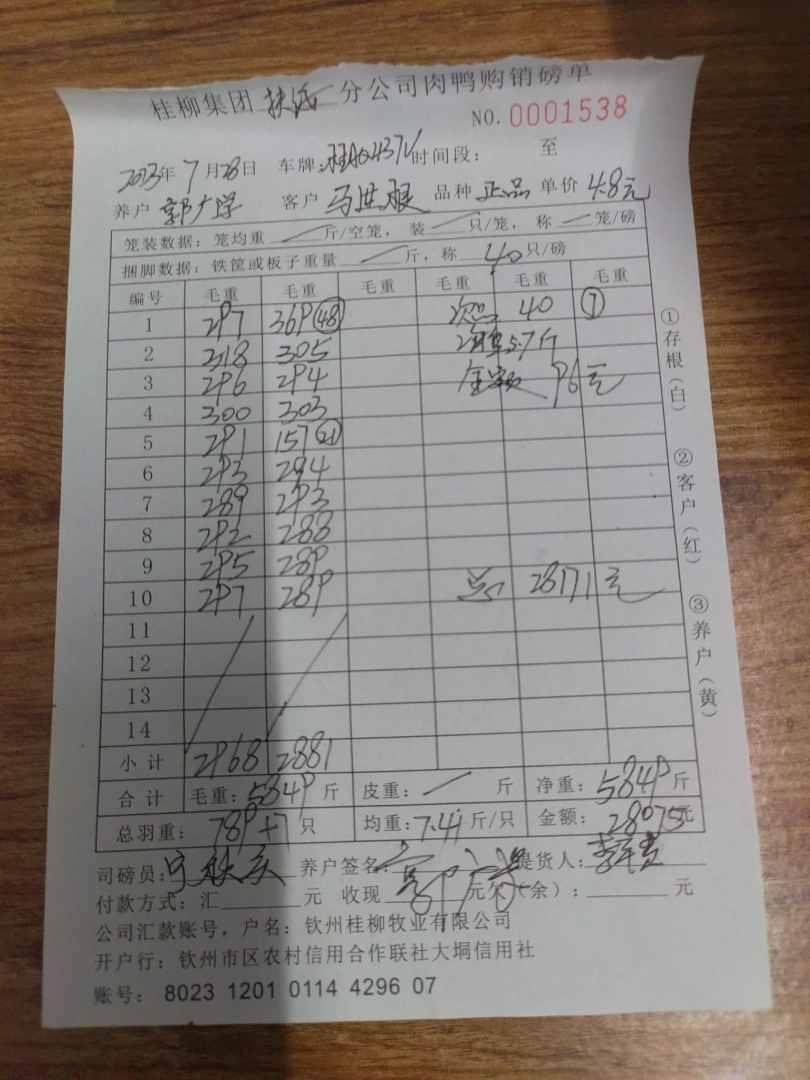 桂柳集团扶绥分公司肉鸭购销磅单
NO. 0001538
2023年7月28日 车牌: 时间段: 至
养户 郭大学 客户 马世根 品种 正品 单价 4.8元
笼装数据: 笼均重 / 斤/空笼, 装 / 只/笼, 称 / 笼/磅
捆脚数据: 铁筐或板子重量 / 斤, 称 40 只/磅
编号 毛重 毛重 毛重 毛重 毛重 毛重
1 297 369 (48) 次品 40 (7)
2 318 305 5.7斤
3 296 294 金额 96元
4 300 303
5 291 157 (21)
6 293 294
7 289 293
8 292 288
9 295 289
10 297 289 总 28171元
11
12
13
14
小计 2968 2881
合计 毛重: 5849 斤 皮重: / 斤 净重: 5849 斤
总羽重: 789+7 只 均重: 7.41 斤/只 金额: 28075元
司磅员: 养户签名: 提货人:
付款方式: 汇 元 收现 元欠(余): 元
公司汇款账号, 户名: 钦州桂柳牧业有限公司
开户行: 钦州市区农村信用合作联社大垌信用社
账号: 8023 1201 0114 4296 07
①存根(白) ②客户(红) ③养户(黄)